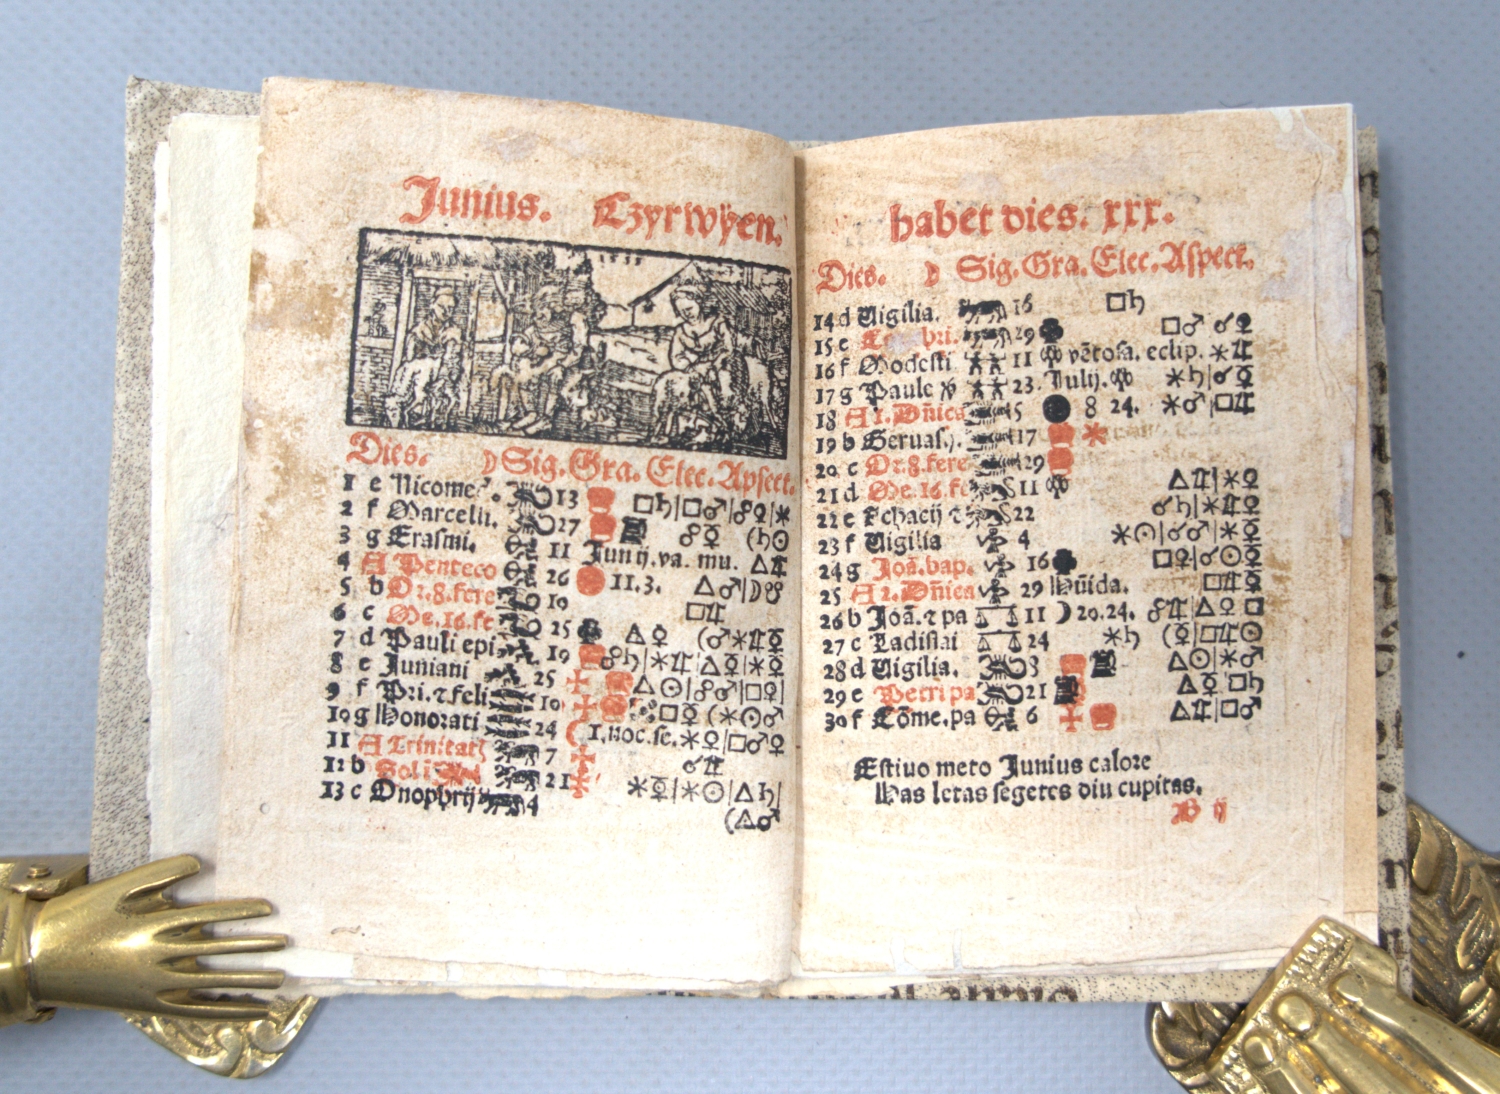 Junius. Czyrwyen.
1533
Dies. ☽ Sig. Gra. Elec. Apsect.
1 e Nicome 13 □♄|□♂|☍♀|✶
2 f Marcelli. 27 ☍☿ (♄☉
3 g Erasmi. 11 Junij. va. mu. △♃
4 A Penteco 26 11.3. △♂|☽☋
5 b Or.8.fere 10 □♃
6 c Me.16.fe 25 △☿ (♂✶♃☿
7 d Pauli epi 19 ☍♄|✶♃|△☿|✶♀
8 e Juniani 25 △☉|☍♂|□♀|
9 f Pri.⁊ feli 10 □☿ (✶☉♂
10 g Honorati 24 1.noc.se. ✶♀|□♂☿
11 A Trinitat 7 ☌♃
12 b Soli 21 ✶☿|✶☉|△♄|
13 c Onophrij 4 (△♂
habet dies. xxx.
Dies. ☽ Sig. Gra. Elec. Aspect.
14 d Uigilia. 16 □♄
15 e 29 □♂ ☌♀
16 f Modesti 11 vētosa. eclip. ✶♃
17 g Paule 23. Julij. ✶♄|☌☿
18 A 1. Dñica 5 8 24. ✶♂|□♃
19 b Geruas. 17
20 c Or.8.fere 29
21 d Me.16.fe 11 △♃|✶♀
22 e 22 ☌♄|✶♃☿
23 f Uigilia 4 ✶☉|☌♂|✶☿
24 g Joā.bap. 16 □♀|☌☉☿
25 A 2. Dñica 29 Hūida. □♃☿
26 b Joā.⁊ pa 11 ☽ 20.24. ☍♃|△♀ □
27 c Ladislai 24 ✶♄ (☿|□♃☉
28 d Uigilia. 3 △☉|✶♂
29 e Petri pa 21 △☿|□♄
30 f Cōme.pa 6 △♃|□♂
Estiuo meto Junius calore
Has letas segetes diu cupitas.
B ij